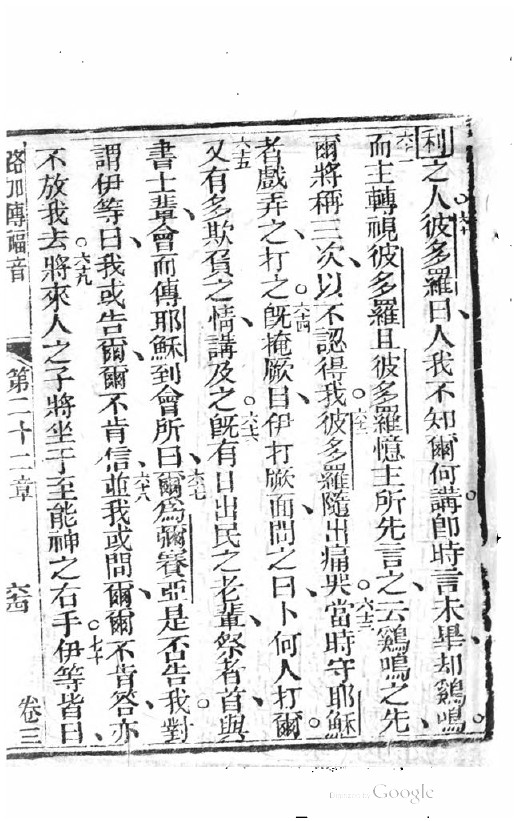 利之人彼多羅曰人我不知爾何講卽時言未畢却鷄鳴
六十
而主轉視彼多羅且彼多羅憶主所先言之云鷄鳴之先
六十一
爾將稱三次以不認得我彼多羅隨出痛哭當時守耶穌
六十二
六十三
者戲弄之打之旣掩厥目伊打厥面問之曰卜何人打爾
六十四
又有多欺負之情講及之旣有日出民之老輩祭者首與
六十五
六十六
書士輩會而傳耶穌到會所曰爾爲彌賽亞是否告我對
六十七
謂伊等曰我或告爾爾不肯信並我或問爾爾不肯答亦
六十八
不放我去將來人之子將坐于至能神之右手伊等皆曰
六十九
七十
路加傳福音
第二十二章
卷三
Digitized by Google